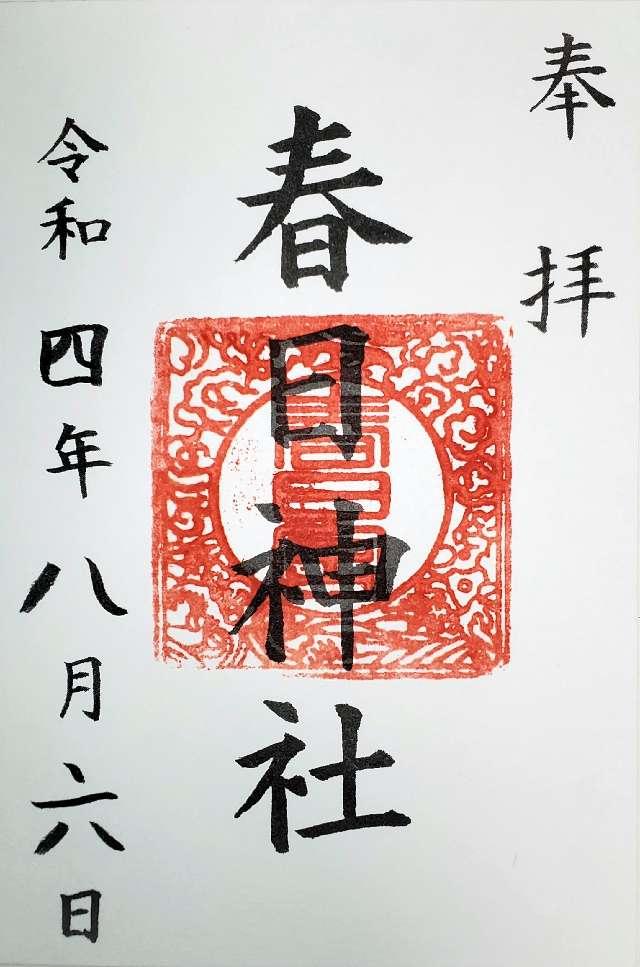 奉拝
春日神社
令和四年八月六日